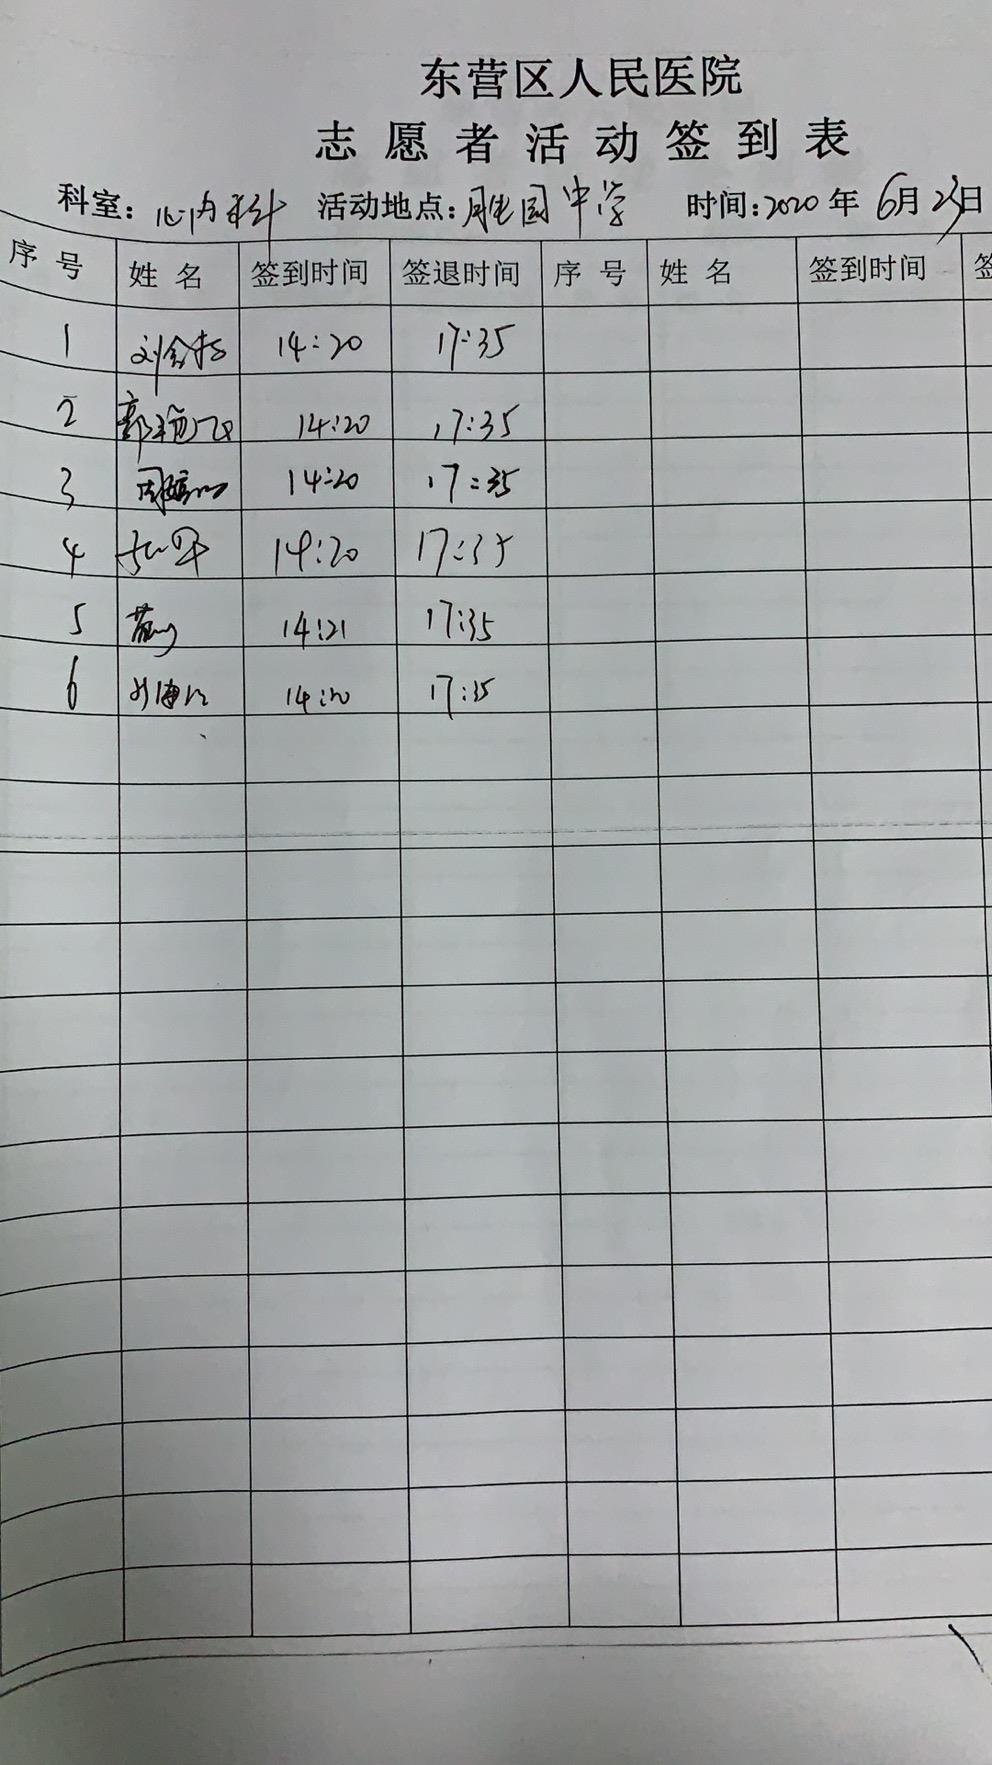 东营区人民医院
志愿者活动签到表
科室：心内科 活动地点：胜利园中学 时间：2020年6月23日
序号 姓名 签到时间 签退时间 序号 姓名 签到时间 签
1 14:20 17:35
2 14:20 17:35
3 14:20 17:35
4 14:20 17:35
5 14:21 17:35
6 14:20 17:35